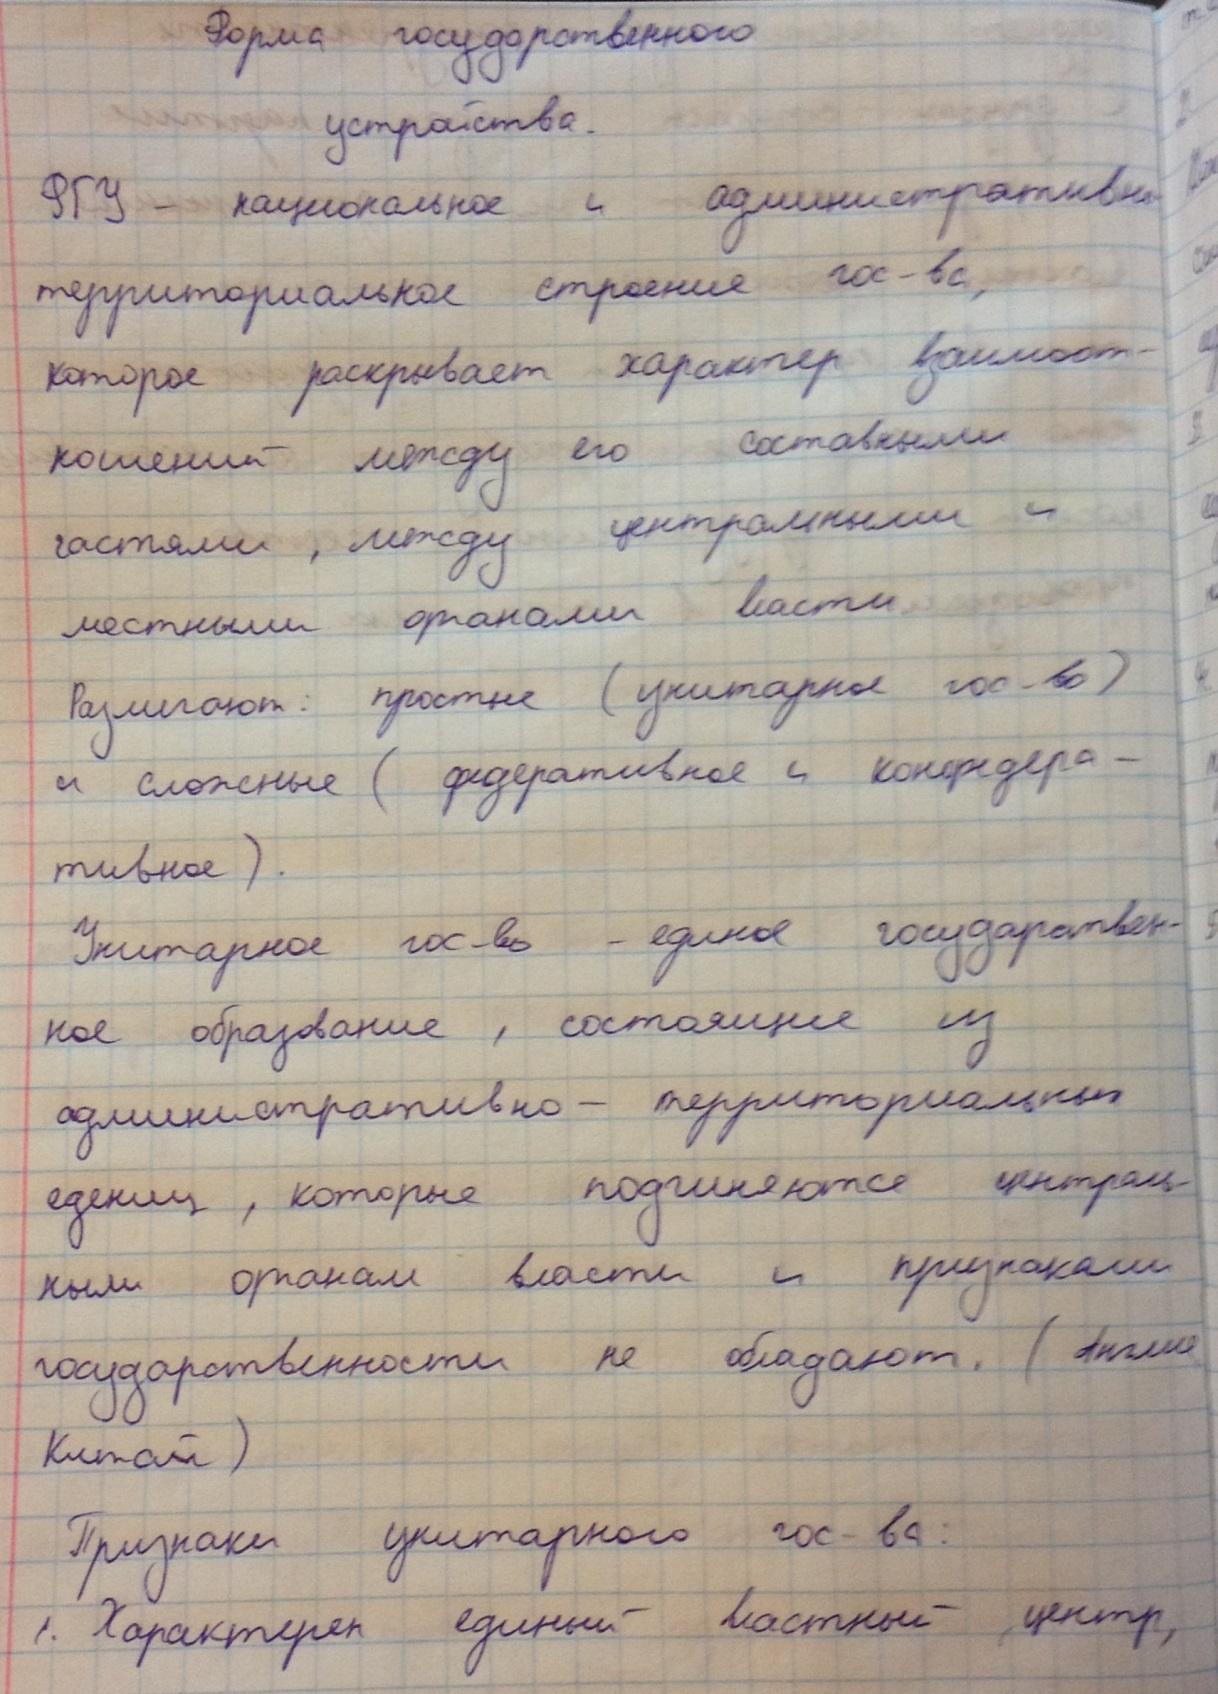 Форма государственного
устройства.
ФГУ - национальное и административно
территориальное строение гос-ва,
которое раскрывает характер взаимоот-
ношений между его составными
частями, между центральными и
местными органами власти
Различают: простые (унитарное гос-во)
и сложные (федеративное и конфедера-
тивное).
Унитарное гос-во - единое государствен-
ное образование, состоящие из
административно - территориальных
едениц, которые подчиняются централь-
ными органам власти и признаками
государственности не обладают. (Англия
Китай)
Признаки унитарного гос-ва:
1. Характерен единый властный центр,